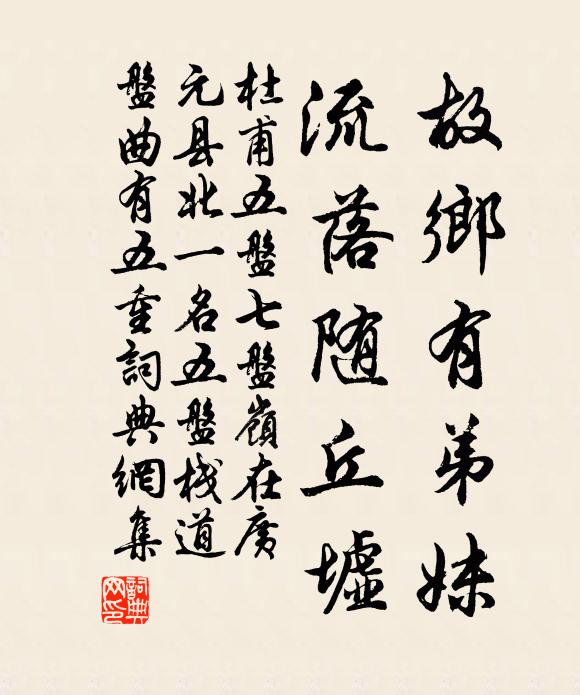 故鄉有弟妹
流落随丘墟
杜甫五盤七盤嶺在廣
元县北一名五盤栈道
盤曲有五重詞典網集
詞典
网印